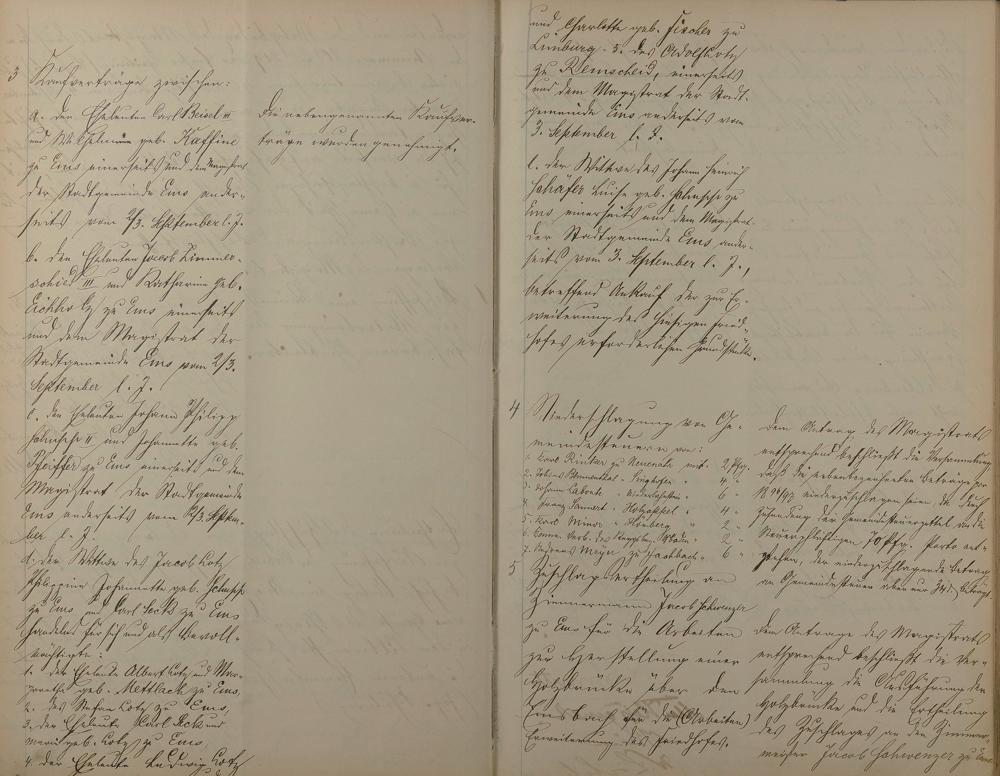 3 Kaufverträge zwischen:
a. den Eheleuten Carl Beisel II
und Wilhelmine geb. Kaffine
zu Ems einerseits und dem Magistrat
der Stadtgemeinde Ems ander-
seits vom 2/3. September l. J.
b. den Eheleuten Jacob Zimmer-
schied III und Katharina geb.
Eichholz zu Ems einerseits
und dem Magistrat der
Stadtgemeinde Ems vom 2/3.
September l. J.
c. den Eheleuten Johann Philipp
II und Johannette geb.
Pfeiffer zu Ems einerseits und dem
Magistrat der Stadtgemeinde
Ems anderseits vom 2/3. Septem-
ber l. J.
d. der Wittwe des Jacob Lotz
Philippine Johannette geb.
zu Ems und Carl Beck zu Ems
handelnd für sich und als Bevoll-
mächtigte:
1. der Eheleute Albert Lotz und Mar-
garethe geb. Mettlach zu Ems,
2. des Stefan Lotz zu Ems,
3. der Eheleute Karl Beck und
Maria geb. Lotz zu Ems
4. der Eheleute Ludwig Lotz
Die nebengenannten Kaufver-
träge werden genehmigt.
und Charlotte geb. Fischer zu
Limburg. 5. des Adolf Lotz
zu Remscheid, einerseits
und dem Magistrat der Stadt-
gemeinde Ems anderseits vom
3. September l. J.
e. der Wittwe des Johann Heinrich
Schäfer Luise geb. zu
Ems einerseits und dem Magistrat
der Stadtgemeinde Ems ander-
seits vom 3. September l. J.,
betreffend Ankauf der zur Er-
weiterung des hiesigen Fried-
hofes erforderlichen Grundstücke.
4 Niederschlagung von Ge-
meindesteuern von:
1. Karl Rinker zu mit 2 Pfg.
2. Blumenthal " Singhofen " 4 "
3. Johann " " 6 "
4. Franz " Holzappel " 4 "
5. Karl Minor " " 2 "
6. " 2 "
7. Andreas Meyer zu " 6 "
Dem Antrag des Magistrats
entsprechend beschließt die Versammlung
daß die nebenbezeichneten Beträge pro
96/97 niederzuschlagen seien, da durch
Zusendung der Gemeindesteuerzettel an die
Steuerpflichtigen 10 Pfg. Porto ent-
stehen, der niederzuschlagende Betrag
an Gemeindesteuer aber nur beträgt.
5 Zuschlagsertheilung an
Zimmermann Jacob Schwenzer
zu Ems für die Arbeiten
zur Herstellung einer
Holzbrücke über den
Emsbach für die (Arbeiten)
Erweiterung des Friedhofes.
Dem Antrage des Magistrats
entsprechend beschließt die Ver-
sammlung die Ausführung der
Holzbrücke und die Ertheilung
des Zuschlages an den Zimmer-
meister Jacob Schwenzer zu Ems